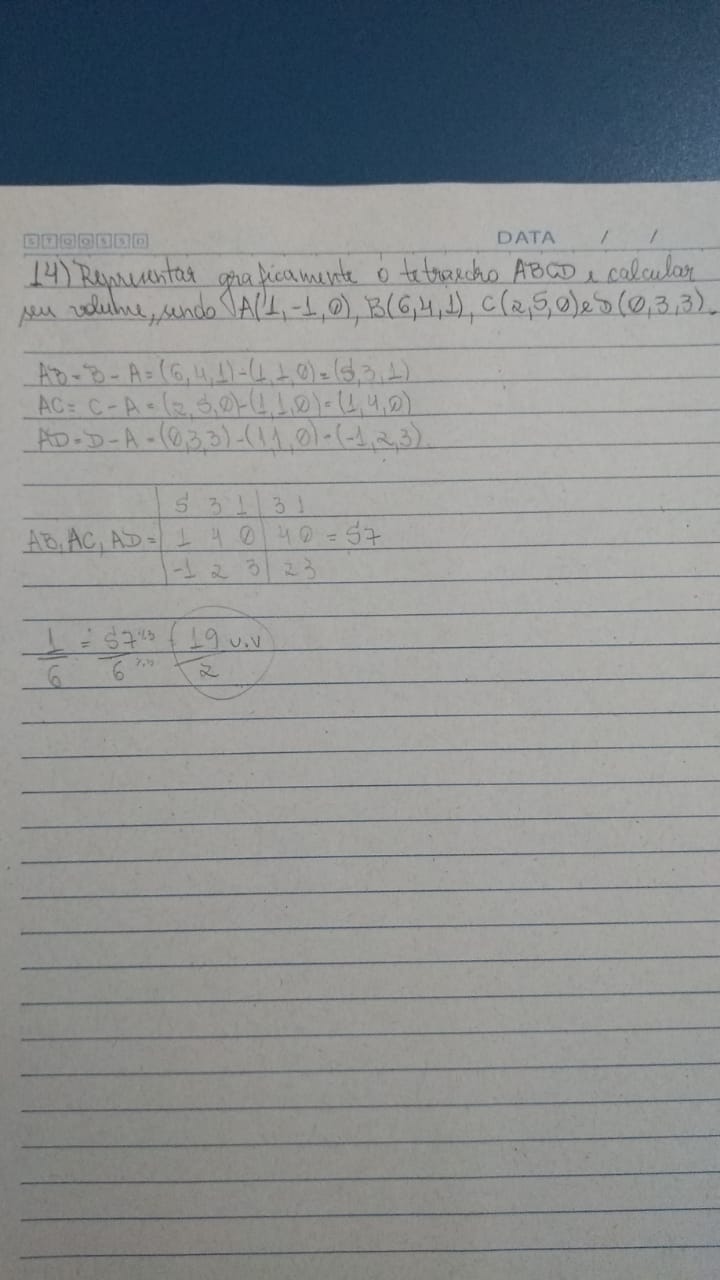 S T Q Q S S D DATA / /
14) Representar graficamente o tetraedro ABCD e calcular
seu volume, sendo A(1,-1,0), B(6,4,1), C(2,5,0) e D(0,3,3).
AB = B - A = (6,4,1) - (1,1,0) = (5,3,1)
AC = C - A = (2,5,0) - (1,1,0) = (1,4,0)
AD = D - A = (0,3,3) - (1,1,0) = (-1,2,3).
5 3 1 | 3 1
AB, AC, AD = 1 4 0 | 4 0 = 57
-1 2 3 | 2 3
1/6 = 57/6 19/2 u.v